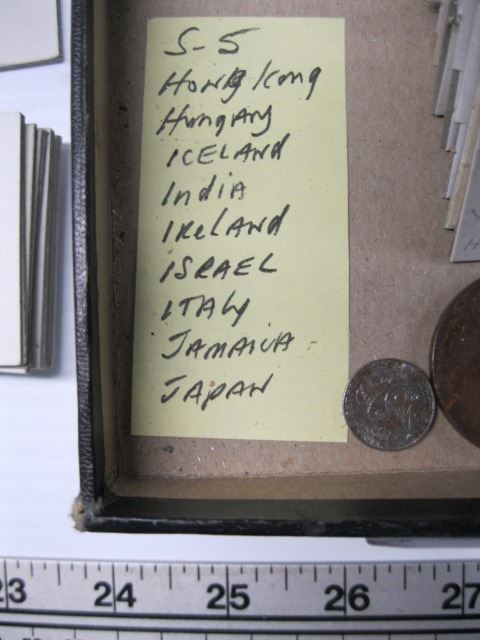 S-5
Hong Kong
Hungary
ICELAND
India
IRELAND
ISRAEL
ITALY
JAMAICA
JAPAN
23 24 25 26 27